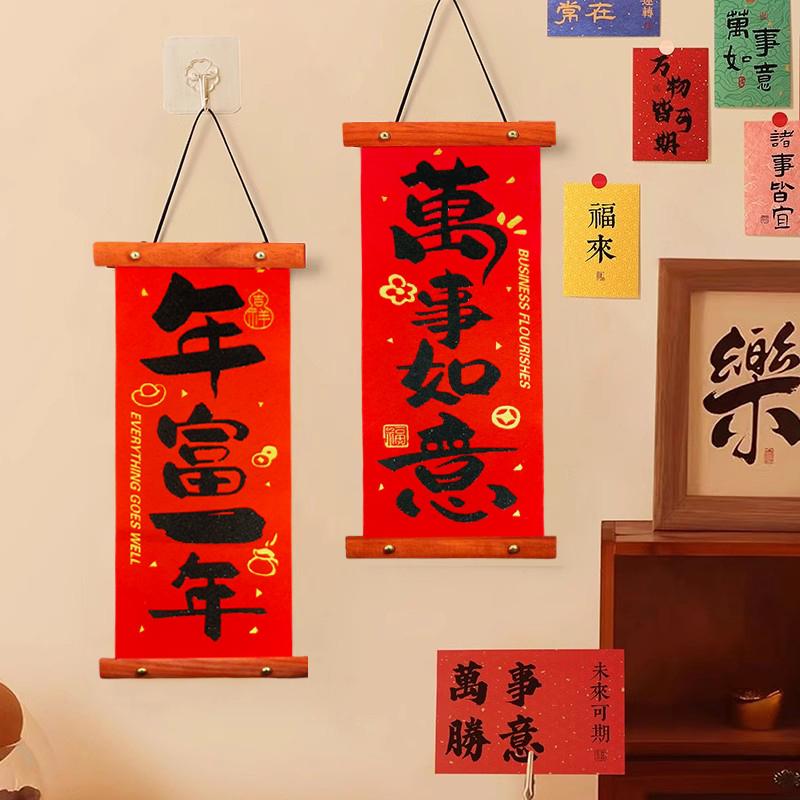 年富一年
吉祥
EVERYTHING GOES WELL
萬事如意
BUSINESS FLOURISHES
福
常在
運轉
萬事如意
万物皆可期
諸事皆宜
福來
樂
萬事勝意
未來可期